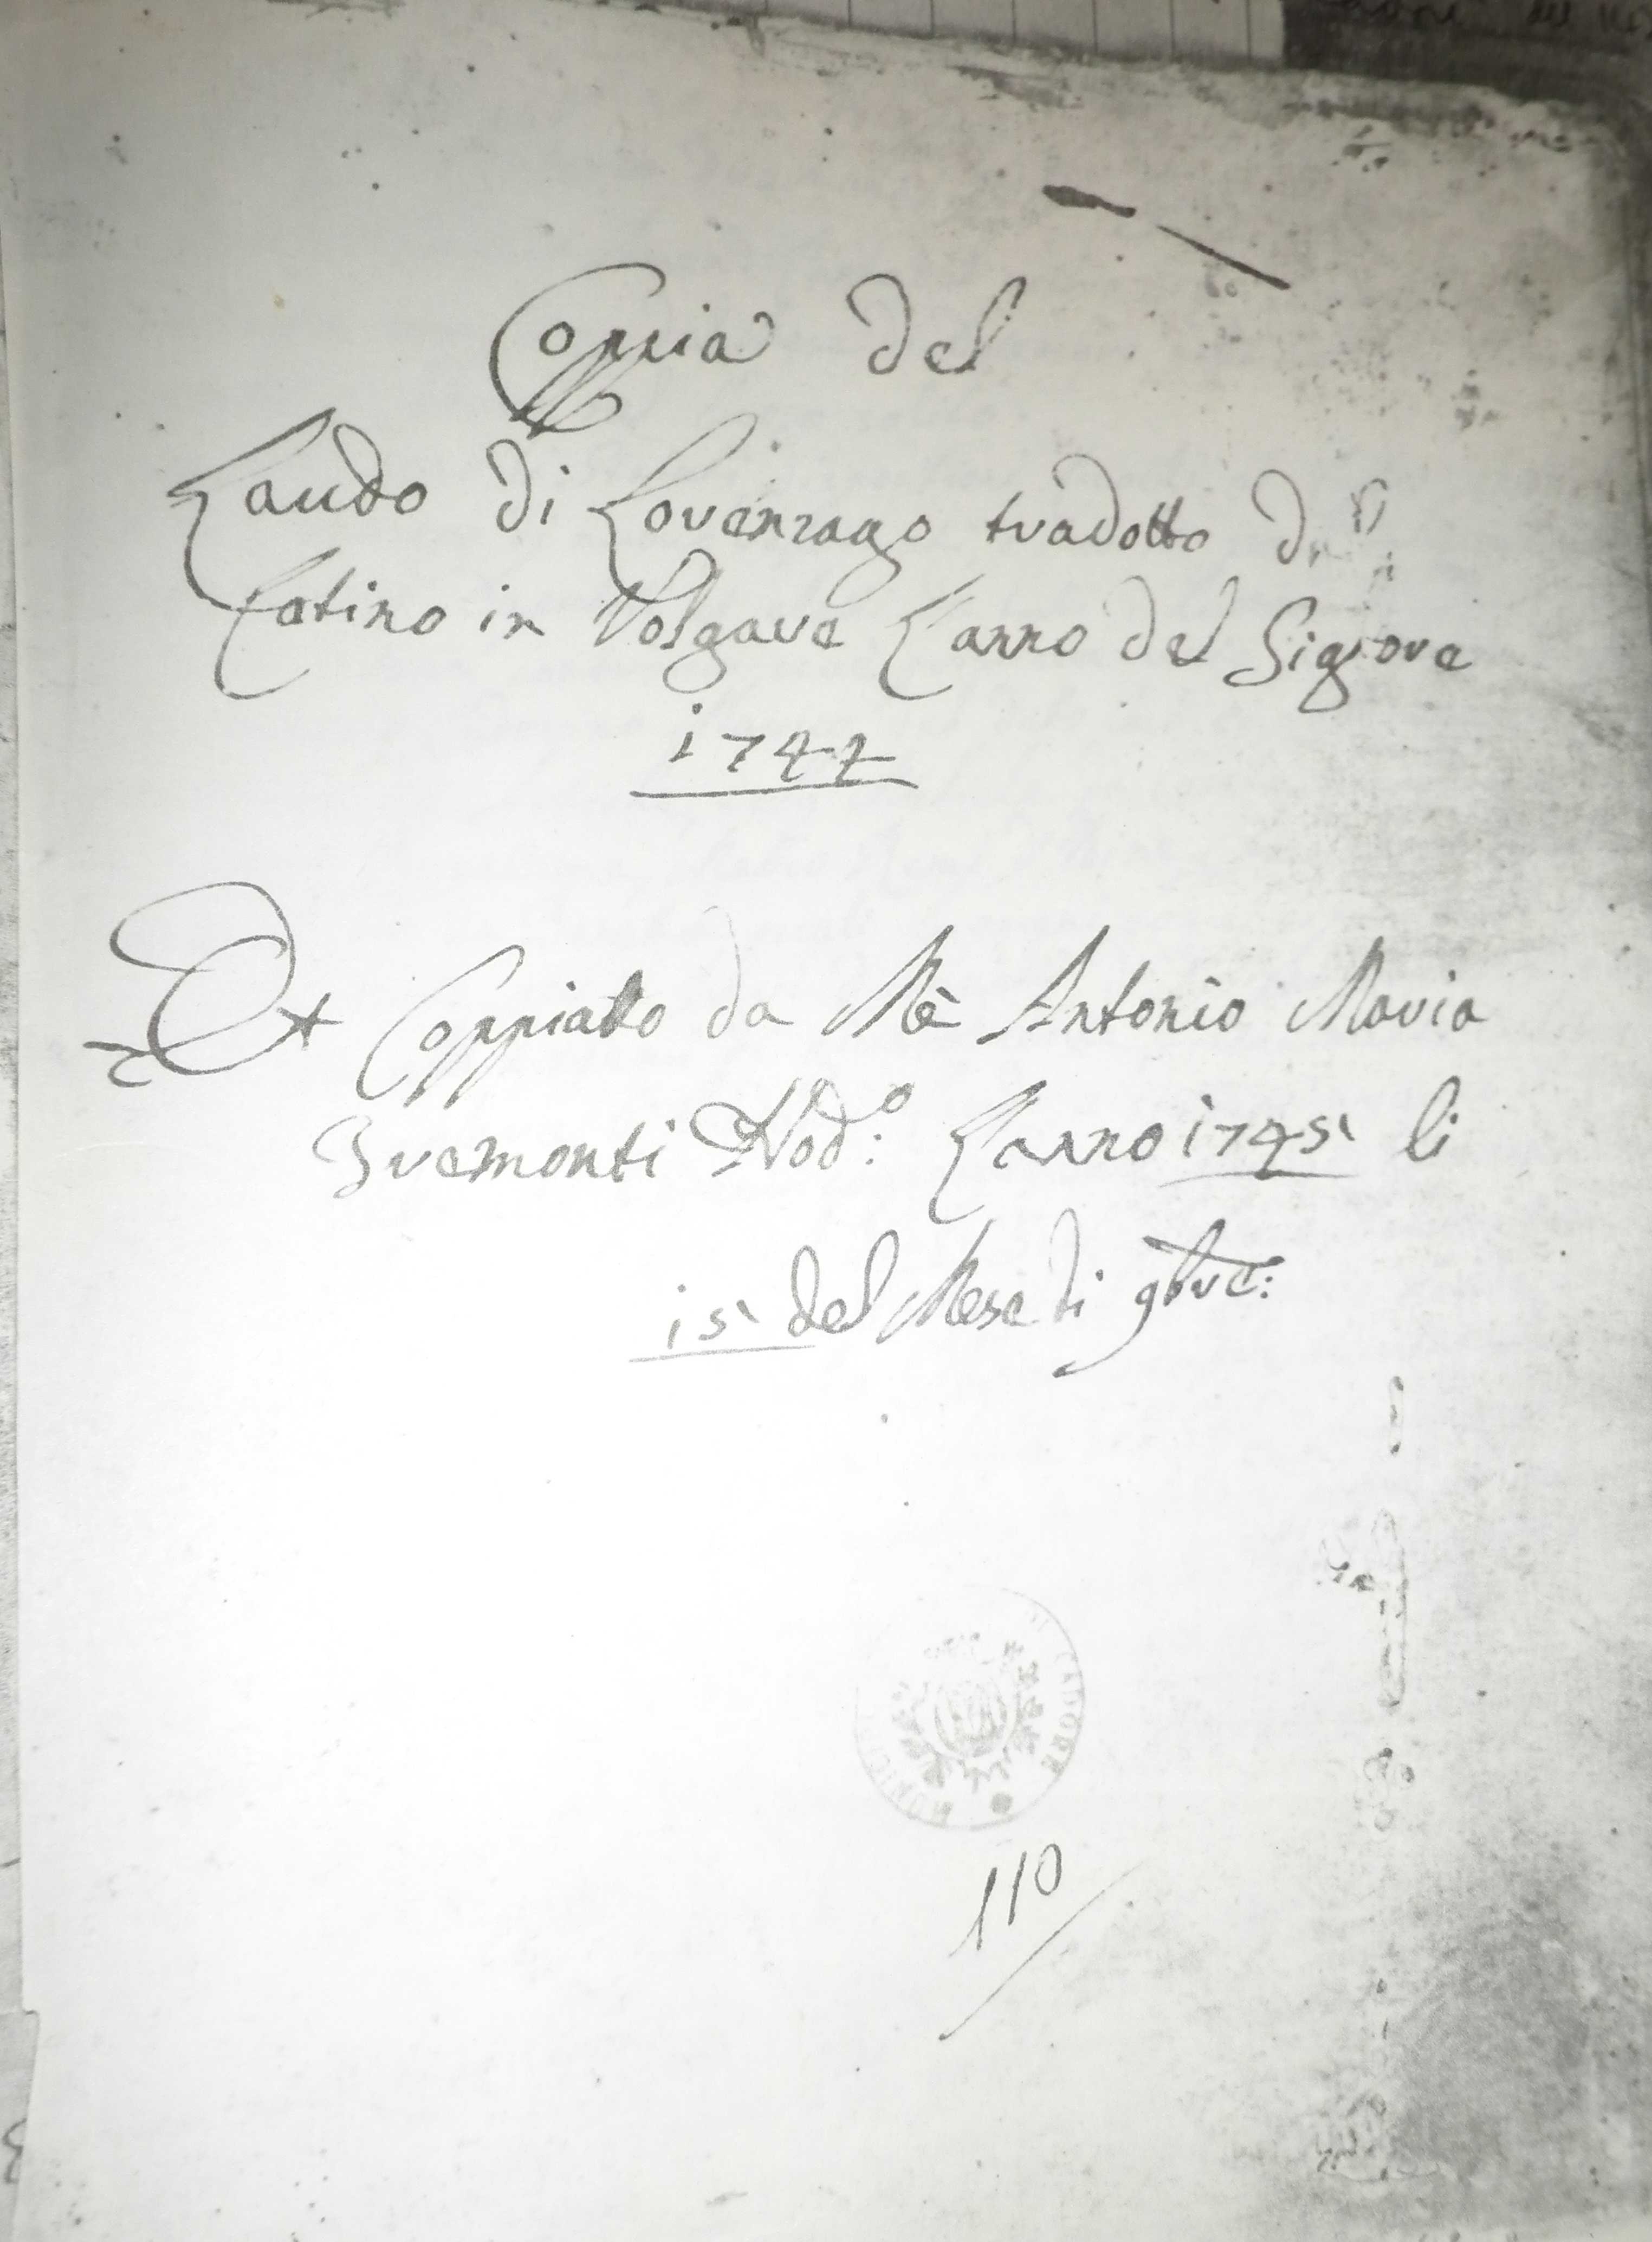 Coppia del
Laudo di Lorenzago tradotto
Latino in Volgare L'anno del Signore
1744
Et Coppiato da Mè Antonio Maria
Tremonti Nod.º L'anno 1745 li
15 del Mese di 9bre:
CADORE
110